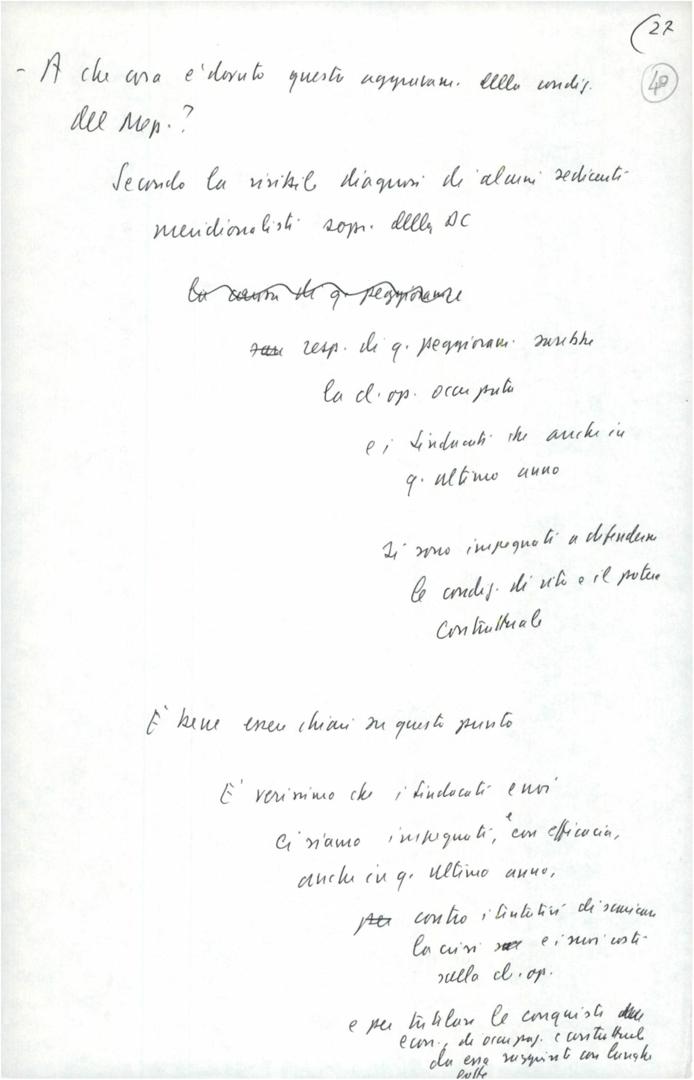 27
40
- A che cosa è dovuto questo aggravam. della condiz.
del Mep.?
Secondo la risibile diagnosi di alcuni sedicenti
meridionalisti sopr. della DC
la causa di q. peggioramre
resp. di q. peggioram. sarebbe
la cl. op. occupata
e i sindacati che anche in
q. ultimo anno
si sono impegnati a difendere
le condiz. di vita e il potere
contrattuale
È bene esser chiari su questo punto
È verissimo che i sindacati e noi
ci siamo impegnati, e con efficacia,
anche in q. ultimo anno,
per contro i tentativi di scaricare
la crisi e i suoi costi
sulla cl. op.
e per tutelare le conquiste
econ., di occupaz. e contrattuali
da essa raggiunte con lunghe
lotte